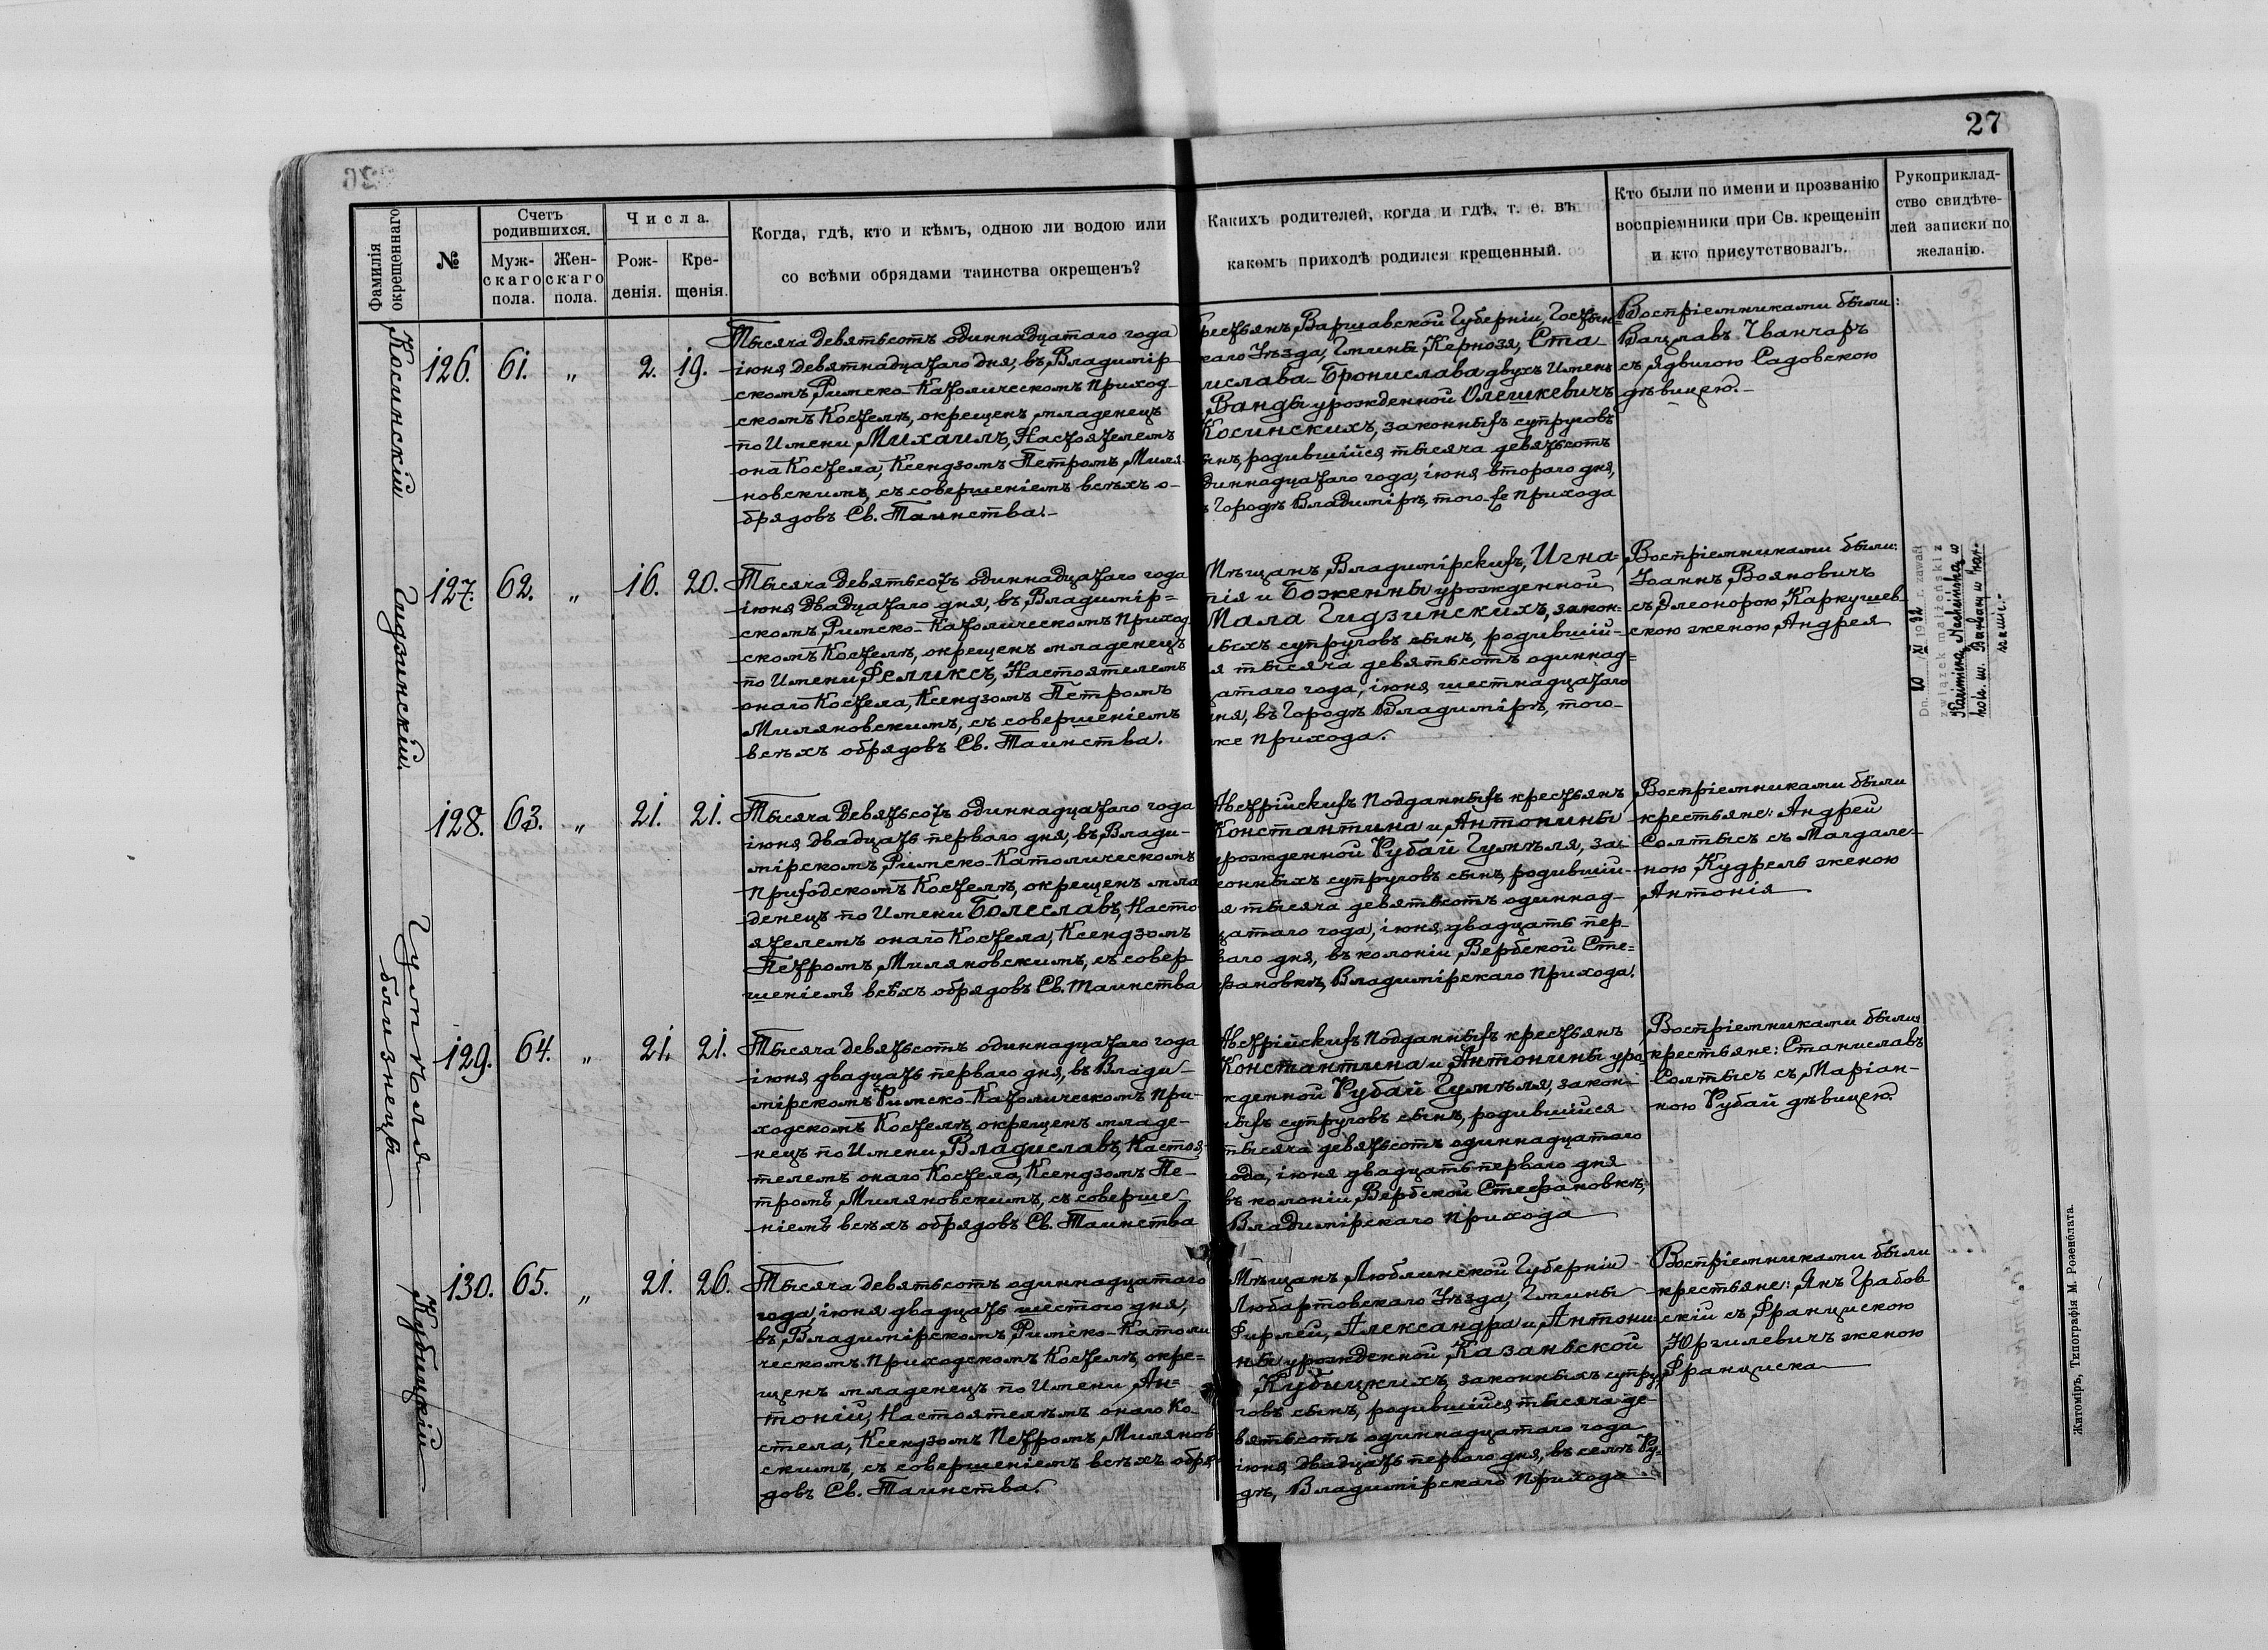 27
Фамилія окрещеннаго
№
Счетъ родившихся.
Мужскаго пола.
Женскаго пола.
Числа.
Рожденія.
Крещенія.
Когда, гдѣ, кто и кѣмъ, одною ли водою или
со всѣми обрядами таинства окрещенъ?
Какихъ родителей, когда и гдѣ, т. е. въ
какомъ приходѣ родился крещенный.
Кто были по имени и прозванію
воспріемники при Св. крещеніи
и кто присутствовалъ.
Рукоприклад-
ство свидѣте-
лей записки по
желанію.
Косинскій
126. 61. „ 2. 19.
Тысяча девятьсотъ одиннадцатаго года
іюня девятнадцатаго дня, въ Владимір-
скомъ Римско-Католическомъ приход-
скомъ Костелѣ, окрещенъ младенецъ
по Имени Михаилъ, Настоятелемъ
она Костела, Ксендзомъ Петромъ Миля-
новскимъ, съ совершеніемъ всѣхъ о-
брядовъ Св. Таинства.
рестьянъ, Варшавской Губерніи, Гостын-
каго Уѣзда, Гмины Кернозя, Ста-
ислава-Бронислава двухъ Именъ
Ванды урожденной Олешкевичъ
Косинскихъ, законныхъ супруговъ
ынъ, родившійся тысяча девятьсотъ
диннадцатаго года, іюня втораго дня,
ъ Городѣ Владимірѣ, того-же прихода
Воспріемниками были:
Вацлавъ Иванчаръ
съ Ядвигою Садовскою
дѣвицею.
Гидзинскій.
127. 62. „ 16. 20.
Тысяча девятьсотъ одиннадцатаго года
іюня двадцатаго дня, въ Владимір-
скомъ Римско-Католическомъ приход-
скомъ Костелѣ, окрещенъ младенецъ
по Имени Феликсъ, Настоятелемъ
онаго Костела, Ксендзомъ Петромъ
Миляновскимъ, съ совершеніемъ
всѣхъ обрядовъ Св. Таинства.
Мѣщанъ Владимірскихъ, Игна-
тія и Боженны урожденной
Мала Гидзинскихъ, закон-
ныхъ супруговъ сынъ, родившій-
я тысяча девятьсотъ одиннад-
цатаго года, іюня шестнадцатаго
ня, въ Городѣ Владимірѣ, того-
же прихода.
Воспріемниками были:
Іоаннъ Вояновичъ
съ Элеонорою Каркушев-
скою женою Андрея
Dn. 20 XI 1932 r. zawarł
związek małżeński z
128. 63. „ 21. 21.
Тысяча девятьсотъ одиннадцатаго года
іюня двадцать перваго дня, въ Влади-
мірскомъ Римско-Католическомъ
приходскомъ Костелѣ, окрещенъ мла
денецъ по Имени Болеславъ, Насто-
ятелемъ онаго Костела, Ксендзомъ
Петромъ Миляновскимъ, съ совер-
шеніемъ всѣхъ обрядовъ Св. Таинства
Австрійскихъ подданныхъ крестьянъ
Константина и Антонины
урожденной Рубай Гумѣля, за-
конныхъ супруговъ сынъ, родившій-
я тысяча девятьсотъ одиннад-
цатаго года, іюня двадцать пер-
ваго дня, въ колоніи Вербской Сте-
фановкѣ, Владимірскаго прихода.
Воспріемниками были
крестьяне: Андрей
Солтысъ съ Магдале-
ною Кудрель женою
Антонія
Гумѣля
близнецы
129. 64. „ 21. 21.
Тысяча девятьсотъ одиннадцатаго года
іюня двадцать перваго дня, въ Влади-
мірскомъ Римско-Католическомъ при-
ходскомъ Костелѣ, окрещенъ младе-
нецъ по Имени Владиславъ, Настоя-
телемъ онаго Костела, Ксендзомъ Пе-
тромъ Миляновскимъ, съ соверше-
ніемъ всѣхъ обрядовъ Св. Таинства
Австрійскихъ подданныхъ крестьянъ
Константина и Антонины уро-
жденной Рубай Гумѣля, закон-
ныхъ супруговъ сынъ, родившійся
тысяча девятьсотъ одиннадцатаго
года, іюня двадцать перваго дня
въ колоніи Вербской Стефановкѣ,
Владимірскаго прихода
Воспріемниками были
крестьяне: Станиславъ
Солтысъ съ Маріан-
ною Рубай дѣвицею.
Кубицкій
130. 65. „ 21. 26.
Тысяча девятьсотъ одиннадцатаго
года, іюня двадцать шестого дня,
въ Владимірскомъ Римско-Католи
ческомъ приходскомъ Костелѣ, окре-
щенъ младенецъ по Имени Ан-
тоній, Настоятелемъ онаго Ко-
стела, Ксендзомъ Петромъ Милянов-
скимъ, съ совершеніемъ всѣхъ обря-
довъ Св. Таинства.
Мѣщанъ, Люблинской Губерніи
Любартовскаго Уѣзда, Гмины
Фирлей, Александра и Антони-
ны урожденной Казаньской
Кубицкихъ, законныхъ супру-
говъ сынъ, родившійся тысяча де-
вятьсотъ одиннадцатаго года
іюня двадцать перваго дня, въ селѣ Ру-
дѣ, Владимірскаго прихода
Воспріемниками были
крестьяне: Янъ Грабов
скій съ Францискою
Юргилевичъ женою
Франциска
Житоміръ, Типографія М. Розенблата.